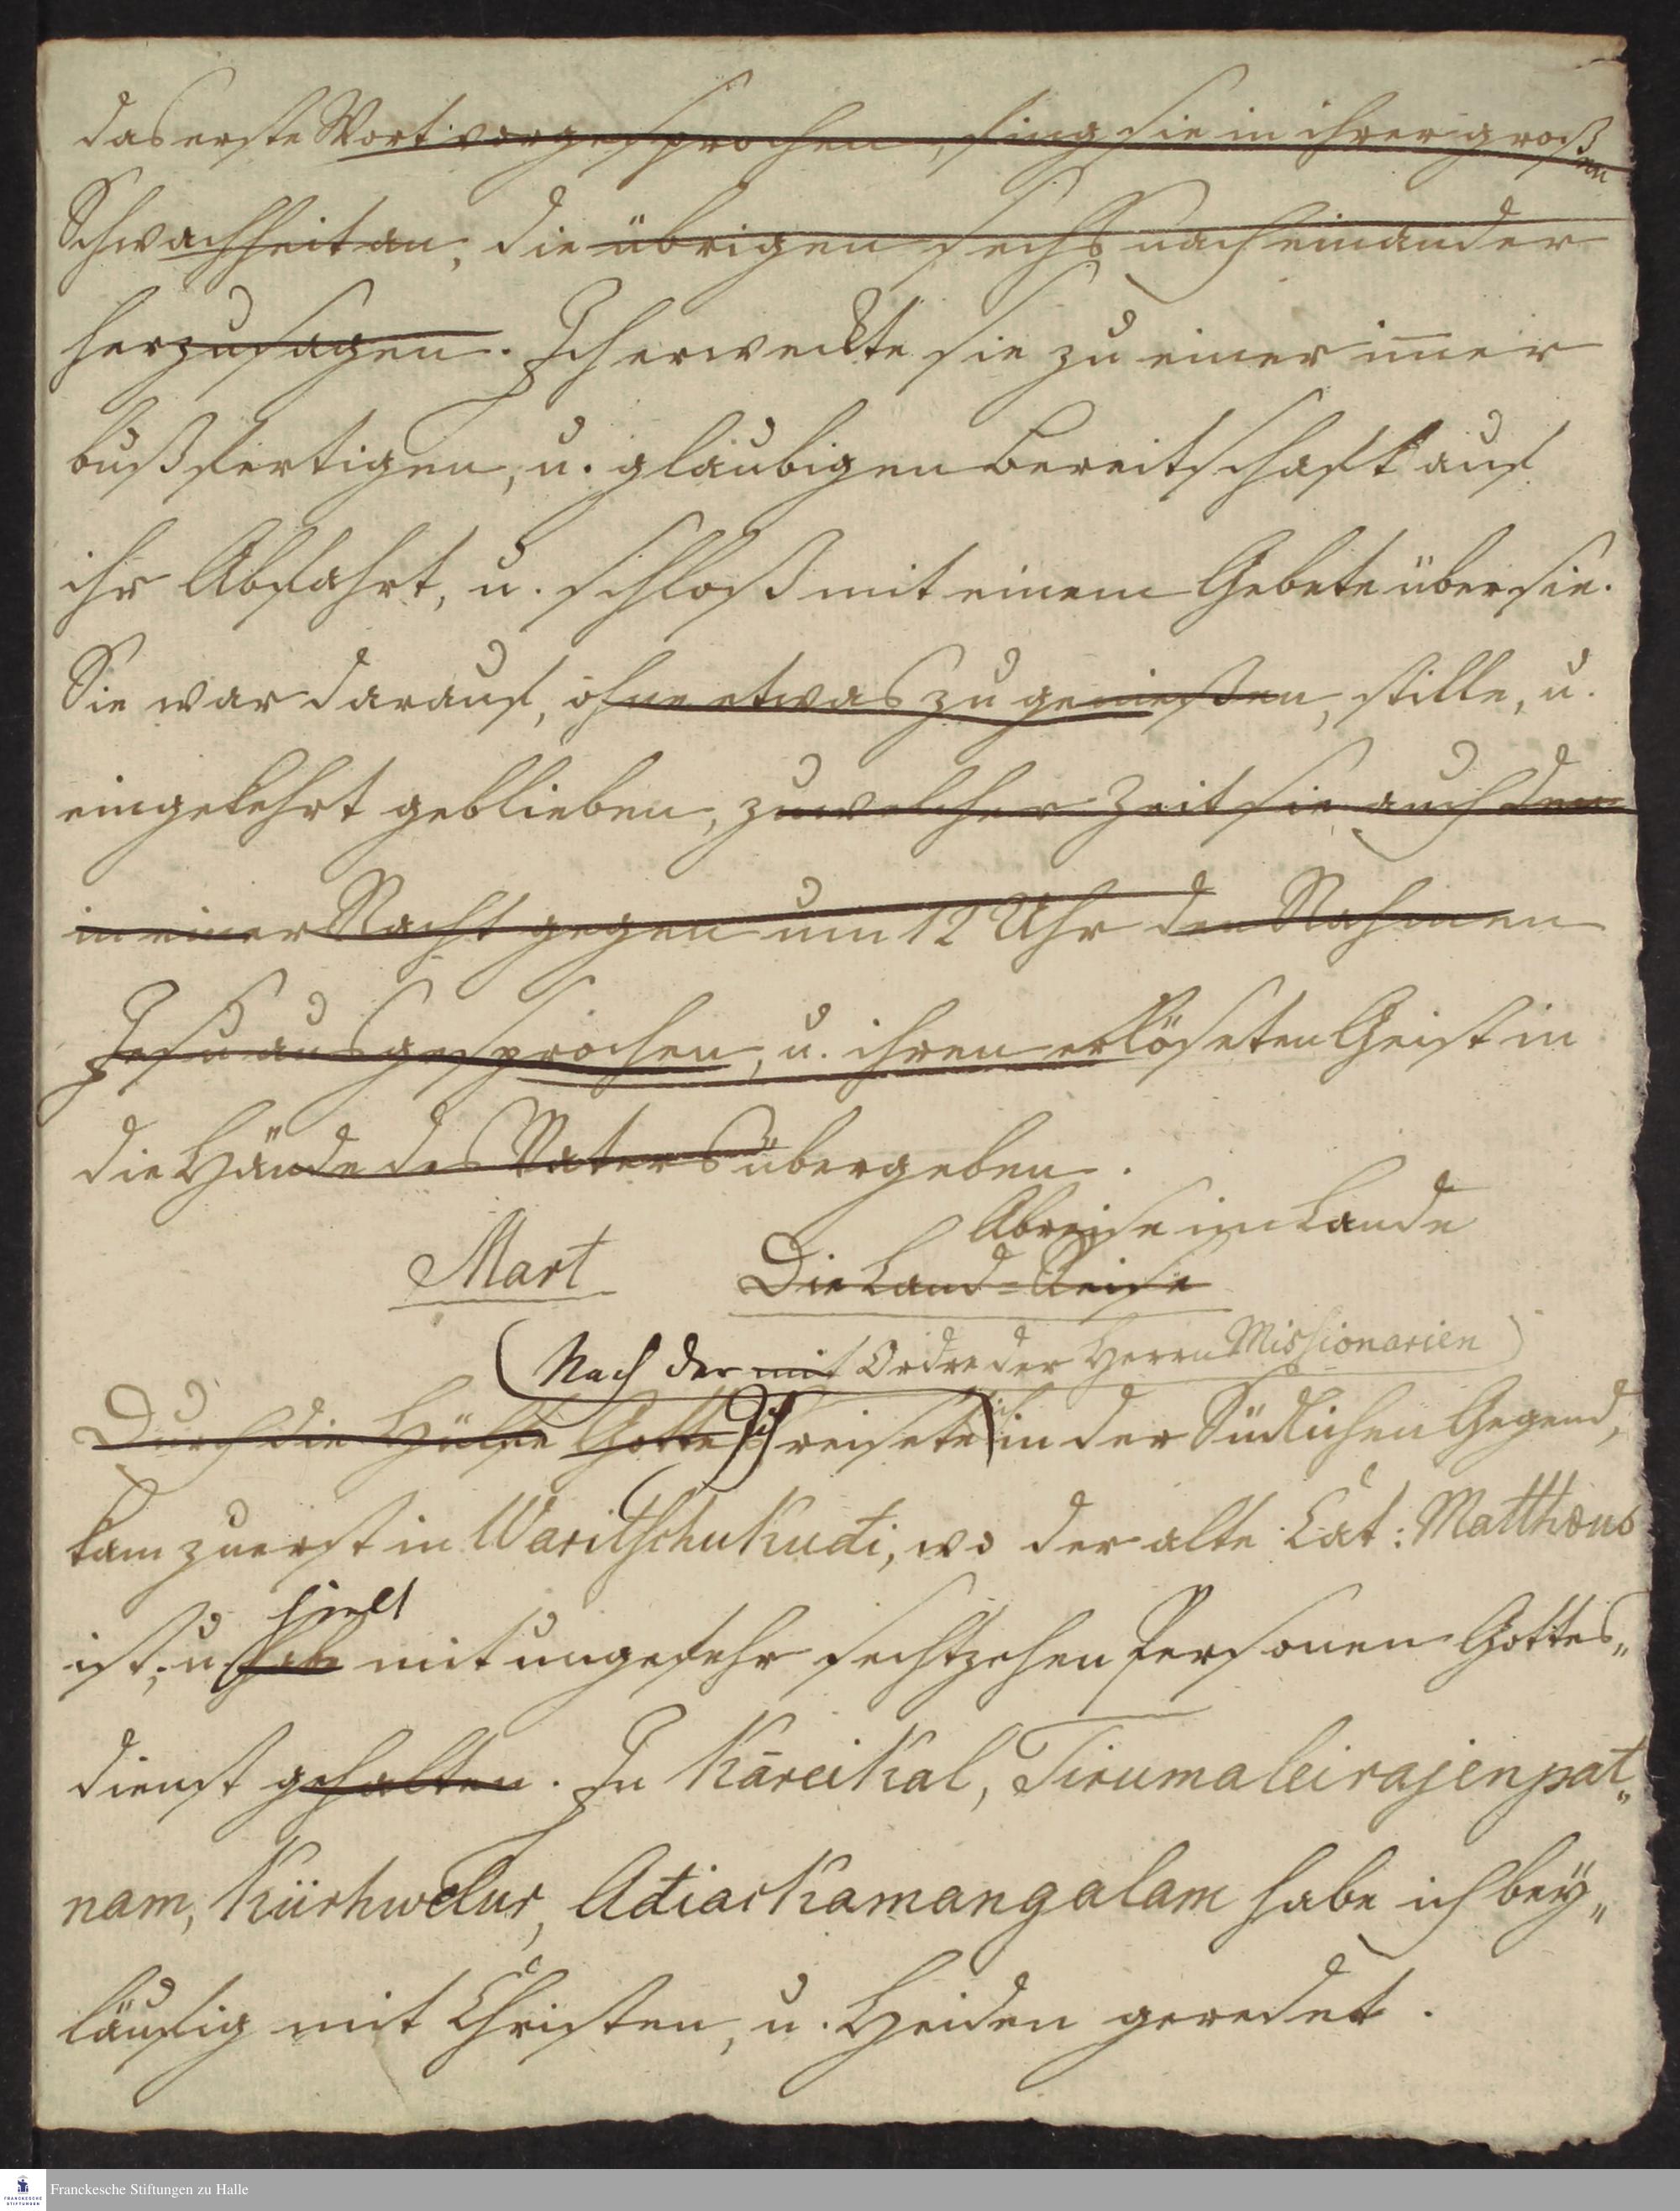 das erste Wort vorgesprochen, fing sie in ihrer großen
Schwachheit an, die übrigen sechs nach einander
herzusagen. Ich erweckte sie zu einer im̄er
bußfertigen, u. glaubigen Bereitschaft auf
ihr Abfahrt, u. schloß mit einem Gebete über sie.
Sie war darauf, ohne etwas zu genießen, stille, u.
eingekehrt geblieben, zu welcher Zeit sie auch den
in einer Nacht gegen um 12 Uhr den Nahmen
Jesu ausgesprochen, u. ihren erlöseten Geist in
die Hände des Vaters übergeben.
Abreise im Lande
Mart Die Land-Reise
(Nach der mit Ordre der Herrn Missionarien)
Durch die Hülfe Gottes ich reisete ich in der Südlichen Gegend,
kam zuerst in Waritschukudi, wo der alte Cat: Matthæus
hielt
ist, u. habe mit ungefehr sechtzehen Personen Gottes„
dienst gehalten. In Kāreikal, Tirumaleirajenpat„
nam, Kürhwelur, Adiackamangalam habe ich bey„
läufig mit Christen, u. Heiden geredet.
Franckesche Stiftungen zu Halle